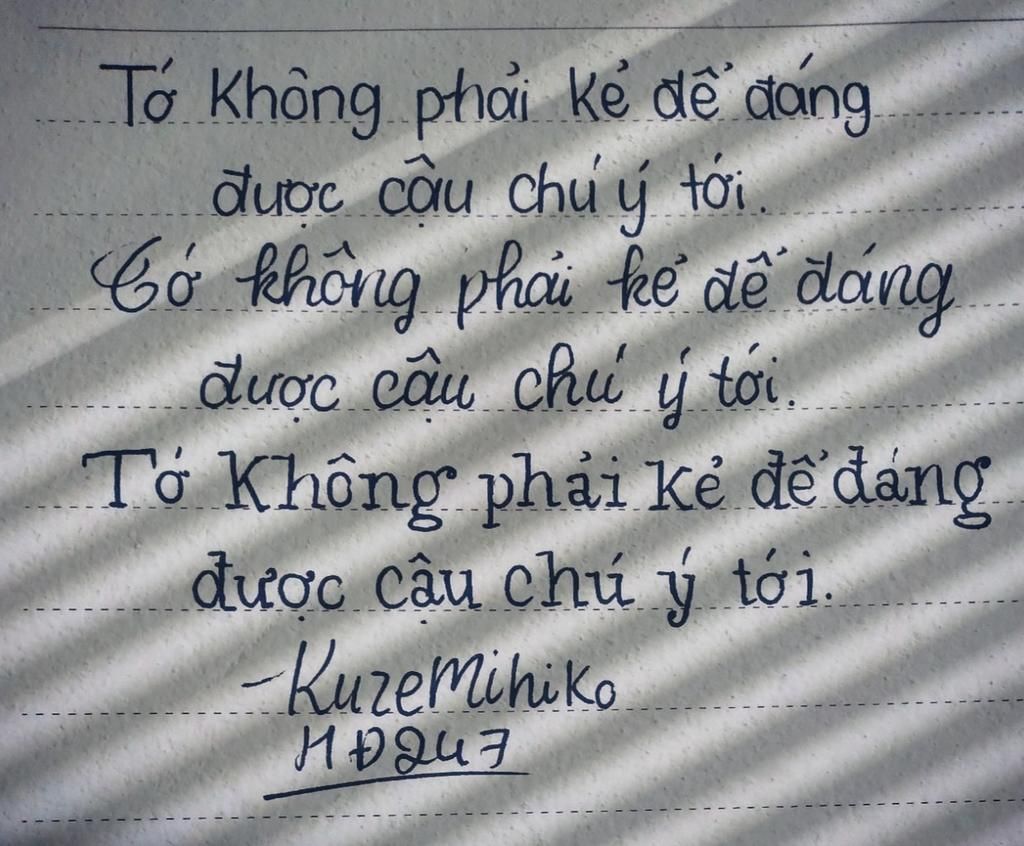 Tớ không phải kẻ để đáng
được cậu chú ý tới.
Tớ không phải kẻ để đáng
được cậu chú ý tới.
Tớ không phải kẻ để đáng
được cậu chú ý tới.
-Kuze Mihiko
HĐ247